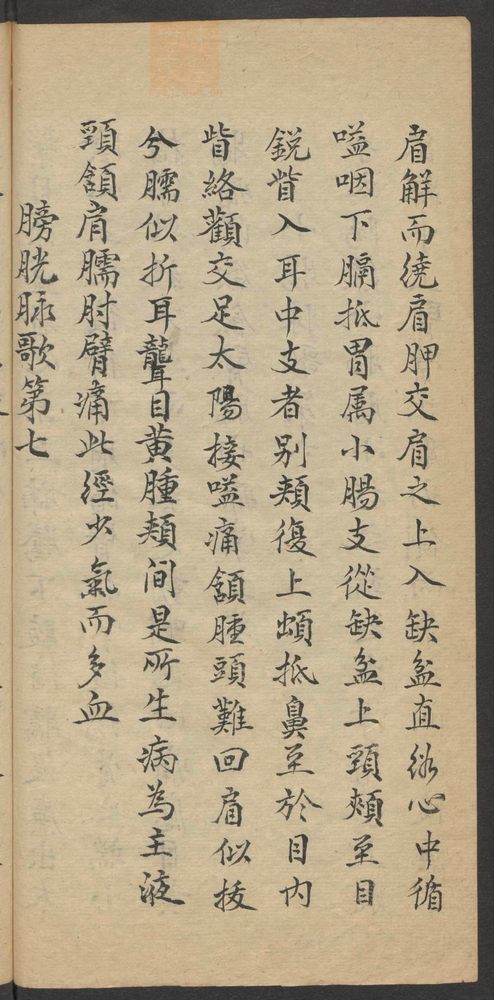 肩解而繞肩胛交肩之上入缺盆直絡心中循
嗌咽下膈抵胃属小腸支從缺盆上頸頰至目
銳眥入耳中支者别頰復上䪼抵鼻至於目内
眥絡顴交足太陽接嗌痛頷腫頭難回肩似拔
兮臑似折耳聾目黄腫頰间是所生病為主液
頸頷肩臑肘臂痛此經少氣而多血
膀胱脉歌第七